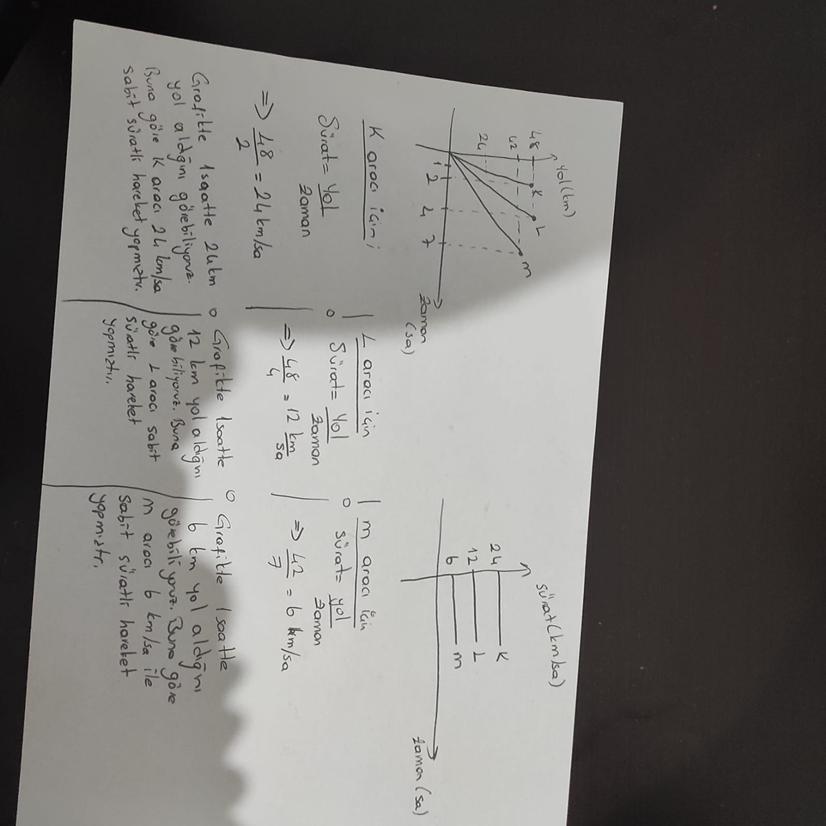 Yol (km)
48
42
24
K
L
m
1 2 4 7
zaman
(sa)
sürat (km/sa)
24
12
6
K
L
m
zaman (sa)
K aracı için;
Sürat = Yol
zaman
=> 48 = 24 km/sa
2
Grafikte 1 saatte 24 km
yol aldığını görebiliyoruz.
Buna göre K aracı 24 km/sa
sabit süratli hareket yapmıştır.
L aracı için
Sürat = Yol
zaman
=> 48 = 12 km
4 sa
Grafikte 1 saatte
12 km yol aldığını
görebiliyoruz. Buna
göre L aracı sabit
süratli hareket
yapmıştır.
m aracı için
sürat = yol
zaman
=> 42 = 6 km/sa
7
Grafikte 1 saatte
6 km yol aldığını
görebiliyoruz. Buna göre
m aracı 6 km/sa ile
sabit süratli hareket
yapmıştır.